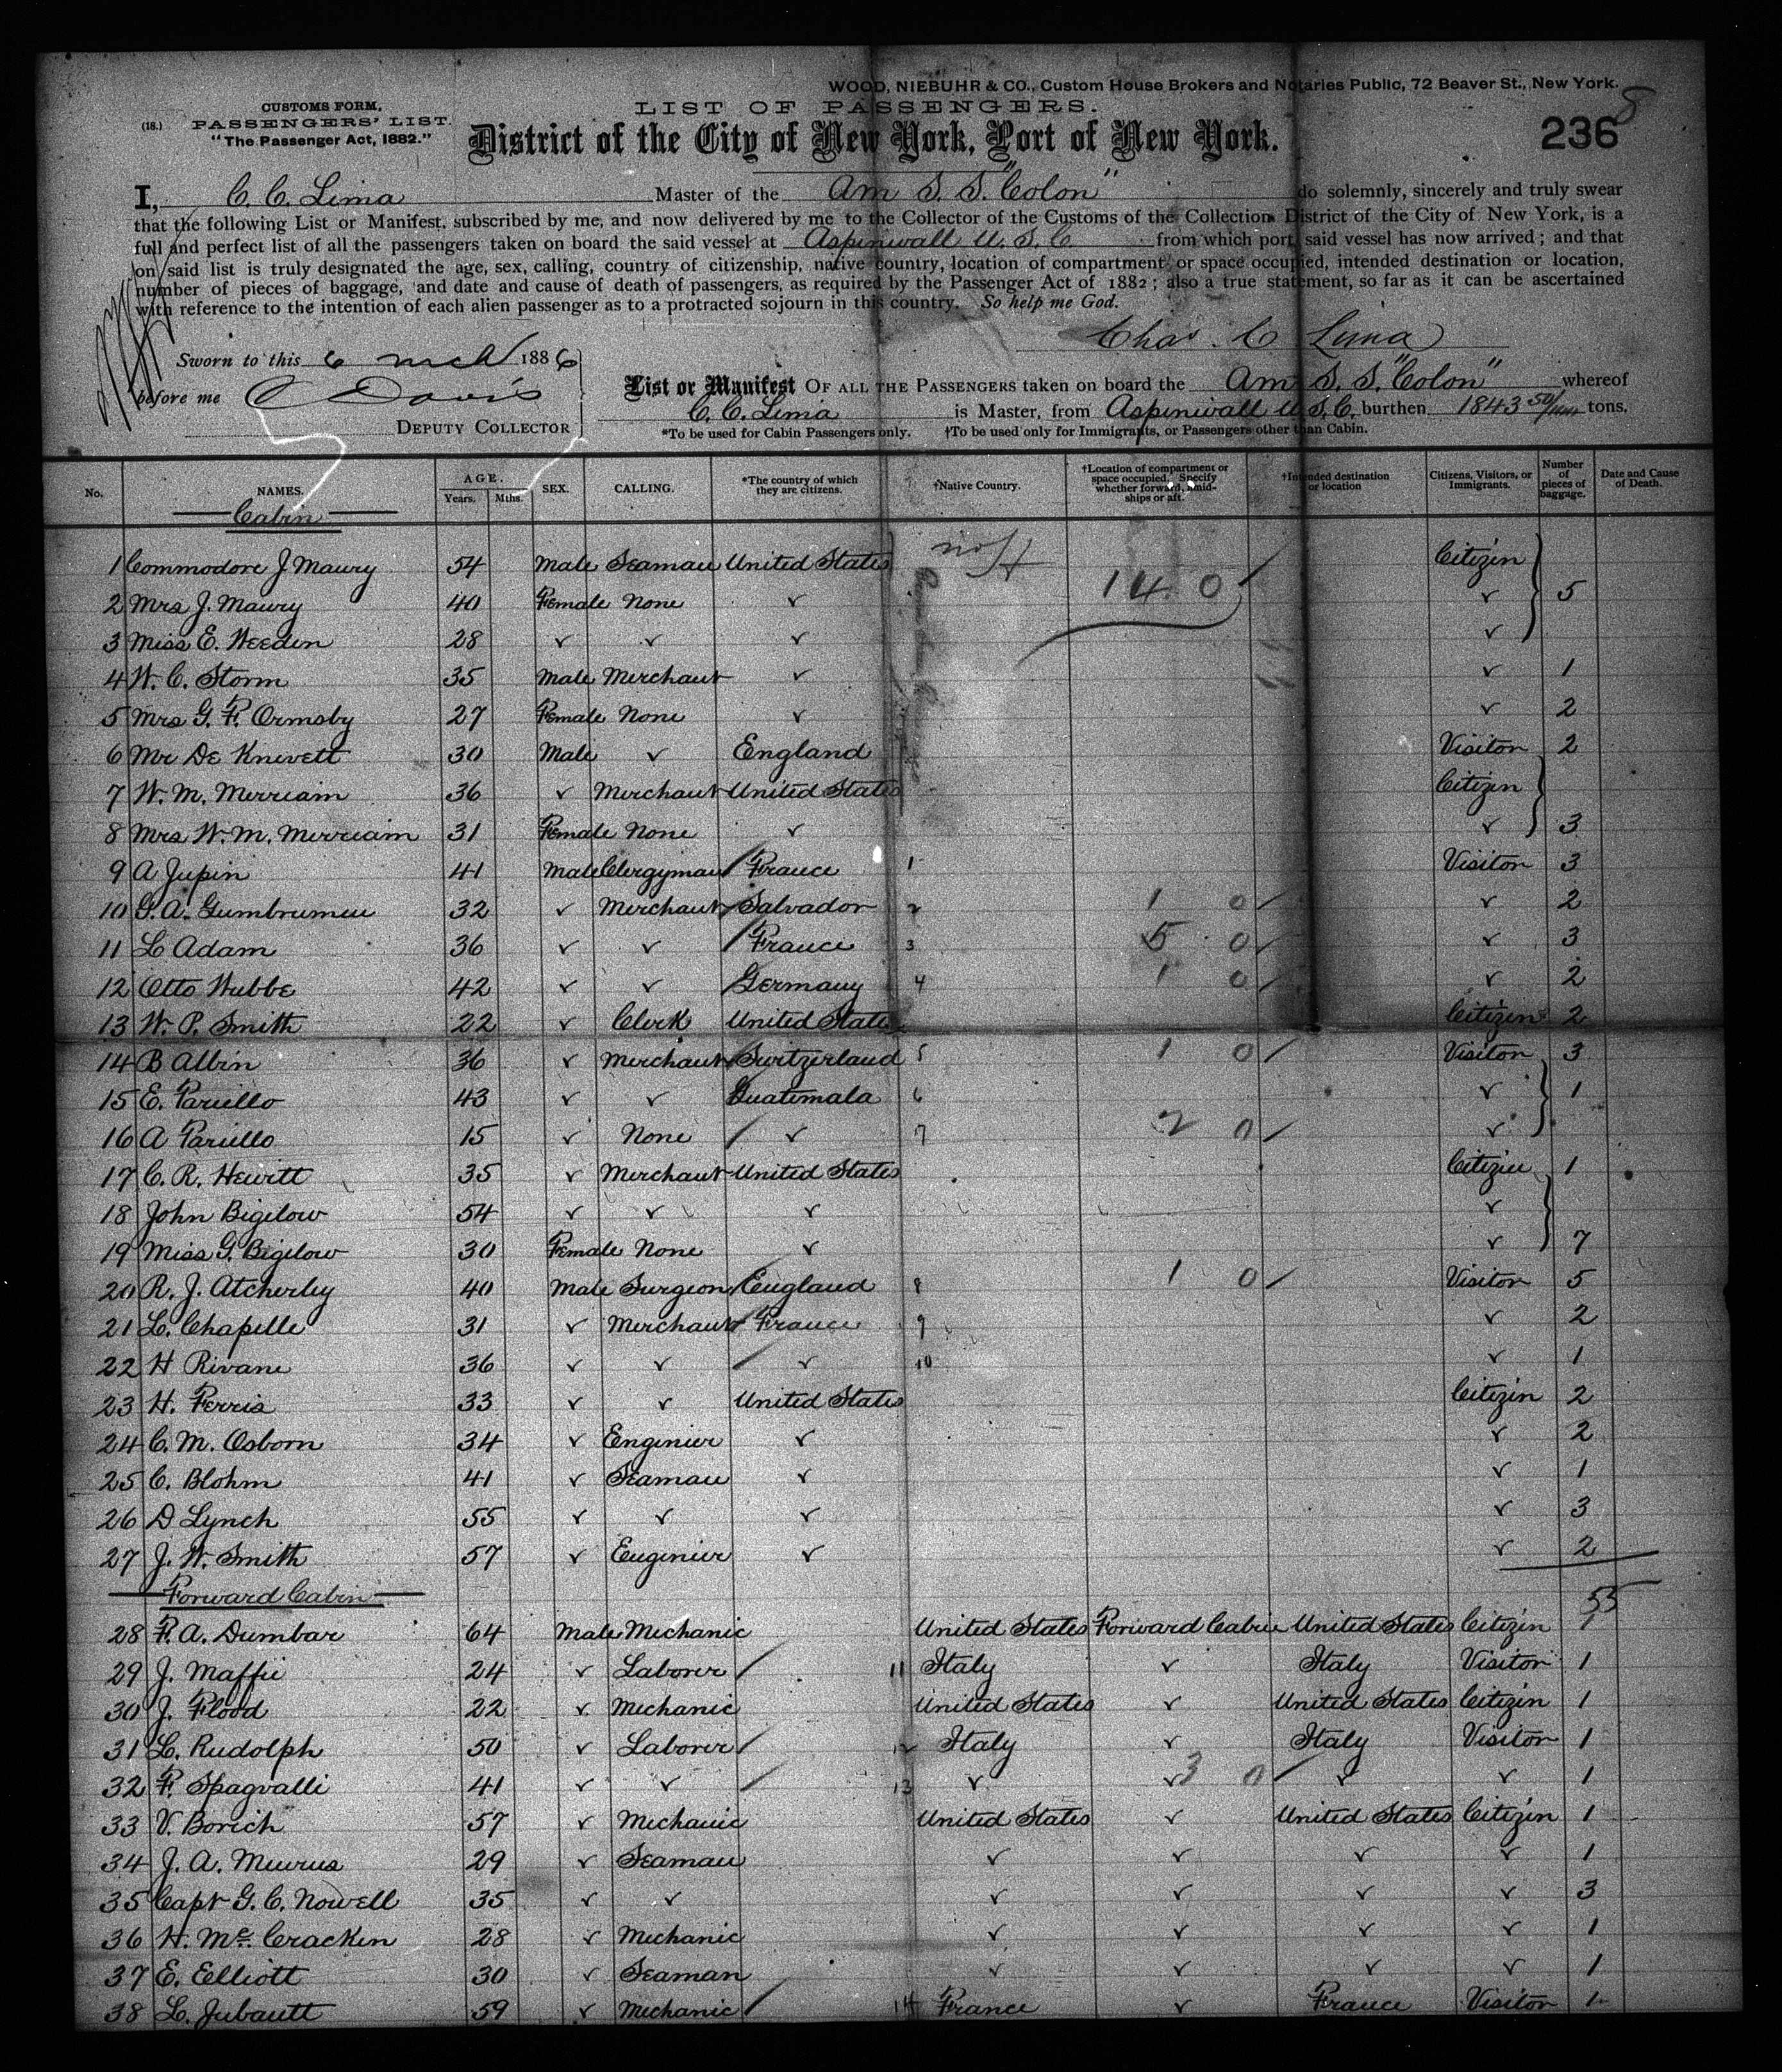 WOOD, NIEBUHR & CO., Custom House Brokers and Notaries Public, 72 Beaver St., New York.
CUSTOMS FORM.
LIST OF PASSENGERS.
(18.) PASSENGERS' LIST.
8
"The Passenger Act, 1882."
District of the City of New York, Port of New York.
236
I, C. C. Lima Master of the Am S. S. "Colon" do solemnly, sincerely and truly swear
that the following List or Manifest, subscribed by me, and now delivered by me to the Collector of the Customs of the Collection District of the City of New York, is a
full and perfect list of all the passengers taken on board the said vessel at Aspinwall U. S. C from which port said vessel has now arrived; and that
on said list is truly designated the age, sex, calling, country of citizenship, native country, location of compartment or space occupied, intended destination or location,
number of pieces of baggage, and date and cause of death of passengers, as required by the Passenger Act of 1882; also a true statement, so far as it can be ascertained
with reference to the intention of each alien passenger as to a protracted sojourn in this country. So help me God.
Chas. C Lima
Sworn to this 6 Mch 1886
before me C Davis
DEPUTY COLLECTOR
List or Manifest OF ALL THE PASSENGERS taken on board the Am S. S. "Colon" whereof
C. C. Lima is Master, from Aspinwall U. S. C. burthen 1843 50/100 tons.
*To be used for Cabin Passengers only. †To be used only for Immigrants, or Passengers other than Cabin.
No. NAMES. AGE. Years. Mths. SEX. CALLING. *The country of which they are citizens. †Native Country. †Location of compartment or space occupied. Specify whether forward, amidships or aft. †Intended destination or location Citizens, Visitors, or Immigrants. Number of pieces of baggage. Date and Cause of Death.
Cabin
1 Commodore J Maury 54 Male Seaman United States Citizen
14 0 ✓
2 Mrs J. Maury 40 Female None ✓ ✓ 5
3 Miss E. Weeden 28 ✓ ✓ ✓ ✓
4 W. C. Storm 35 Male Merchant ✓ ✓ 1
5 Mrs G. F. Ormsby 27 Female None ✓ ✓ 2
6 Mr De Knevett 30 Male ✓ England Visitor 2
7 W. M. Merriam 36 ✓ Merchant United States Citizen
8 Mrs W. M. Merriam 31 Female None ✓ ✓ 3
9 A Jupin 41 Male Clergyman France 1 Visitor 3
10 G. A. Gumbrumeu 32 ✓ Merchant Salvador 2 1 0 ✓ ✓ 2
11 L Adam 36 ✓ ✓ France 3 5 0 ✓ ✓ 3
12 Otto Wubbe 42 ✓ ✓ Germany 4 1 0 ✓ ✓ 2
13 W. P. Smith 22 ✓ Clerk United States Citizen 2
14 B Albin 36 ✓ Merchant Switzerland 5 1 0 ✓ Visitor 3
15 E. Pariello 43 ✓ ✓ Guatemala 6 ✓ 1
16 A Pariello 15 ✓ None ✓ 7 2 0 ✓ ✓
17 C. R. Hewitt 35 ✓ Merchant United States Citizen 1
18 John Bigelow 54 ✓ ✓ ✓ ✓
19 Miss G. Bigelow 30 Female None ✓ ✓ 7
20 R. J. Atcherley 40 Male Surgeon England 8 1 0 ✓ Visitor 5
21 L. Chapelle 31 ✓ Merchant France 9 ✓ 2
22 H Rivane 36 ✓ ✓ ✓ 10 ✓ 1
23 H. Ferris 33 ✓ ✓ United States Citizen 2
24 C. M. Osborn 34 ✓ Enginier ✓ ✓ 2
25 C. Blohm 41 ✓ Seaman ✓ ✓ 1
26 D Lynch 55 ✓ ✓ ✓ ✓ 3
27 J. W. Smith 57 ✓ Enginier ✓ ✓ 2
Forward Cabin 55
28 F. A. Dumbar 64 Male Mechanic United States Forward Cabin United States Citizen 1
29 J. Maffii 24 ✓ Laborer 11 Italy ✓ Italy Visitor 1
30 J. Flood 22 ✓ Mechanic United States ✓ United States Citizen 1
31 L. Rudolph 50 ✓ Laborer 12 Italy ✓ Italy Visitor 1
32 F. Spagvalli 41 ✓ ✓ 13 ✓ ✓ 3 0 ✓ ✓ ✓ 1
33 V. Borich 57 ✓ Mechanic United States ✓ United States Citizen 1
34 J. A. Meurus 29 ✓ Seaman ✓ ✓ ✓ ✓ 1
35 Capt G. C. Nowell 35 ✓ ✓ ✓ ✓ ✓ ✓ 3
36 H. Mc. Cracken 28 ✓ Mechanic ✓ ✓ ✓ ✓ 1
37 E. Elliott 30 ✓ Seaman ✓ ✓ ✓ ✓ 1
38 L. Jubautt 59 ✓ Mechanic 14 France ✓ France Visitor 1